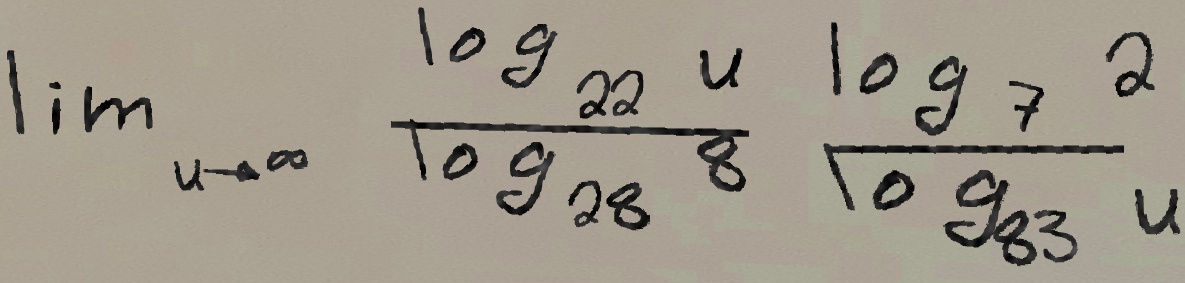 \lim_{u \to \infty} \frac{\log_{22} u}{\log_{28} 8} \frac{\log_7 2}{\log_{83} u}